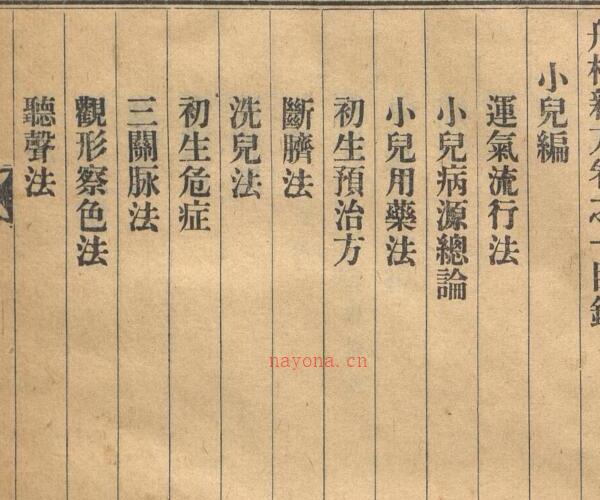 丹林新方卷之一目錄
小兒編
運氣流行法
小兒病源總論
小兒用藥法
初生預治方
斷臍法
洗兒法
初生危症
三關脉法
觀形察色法
聽聲法
nayona.cn